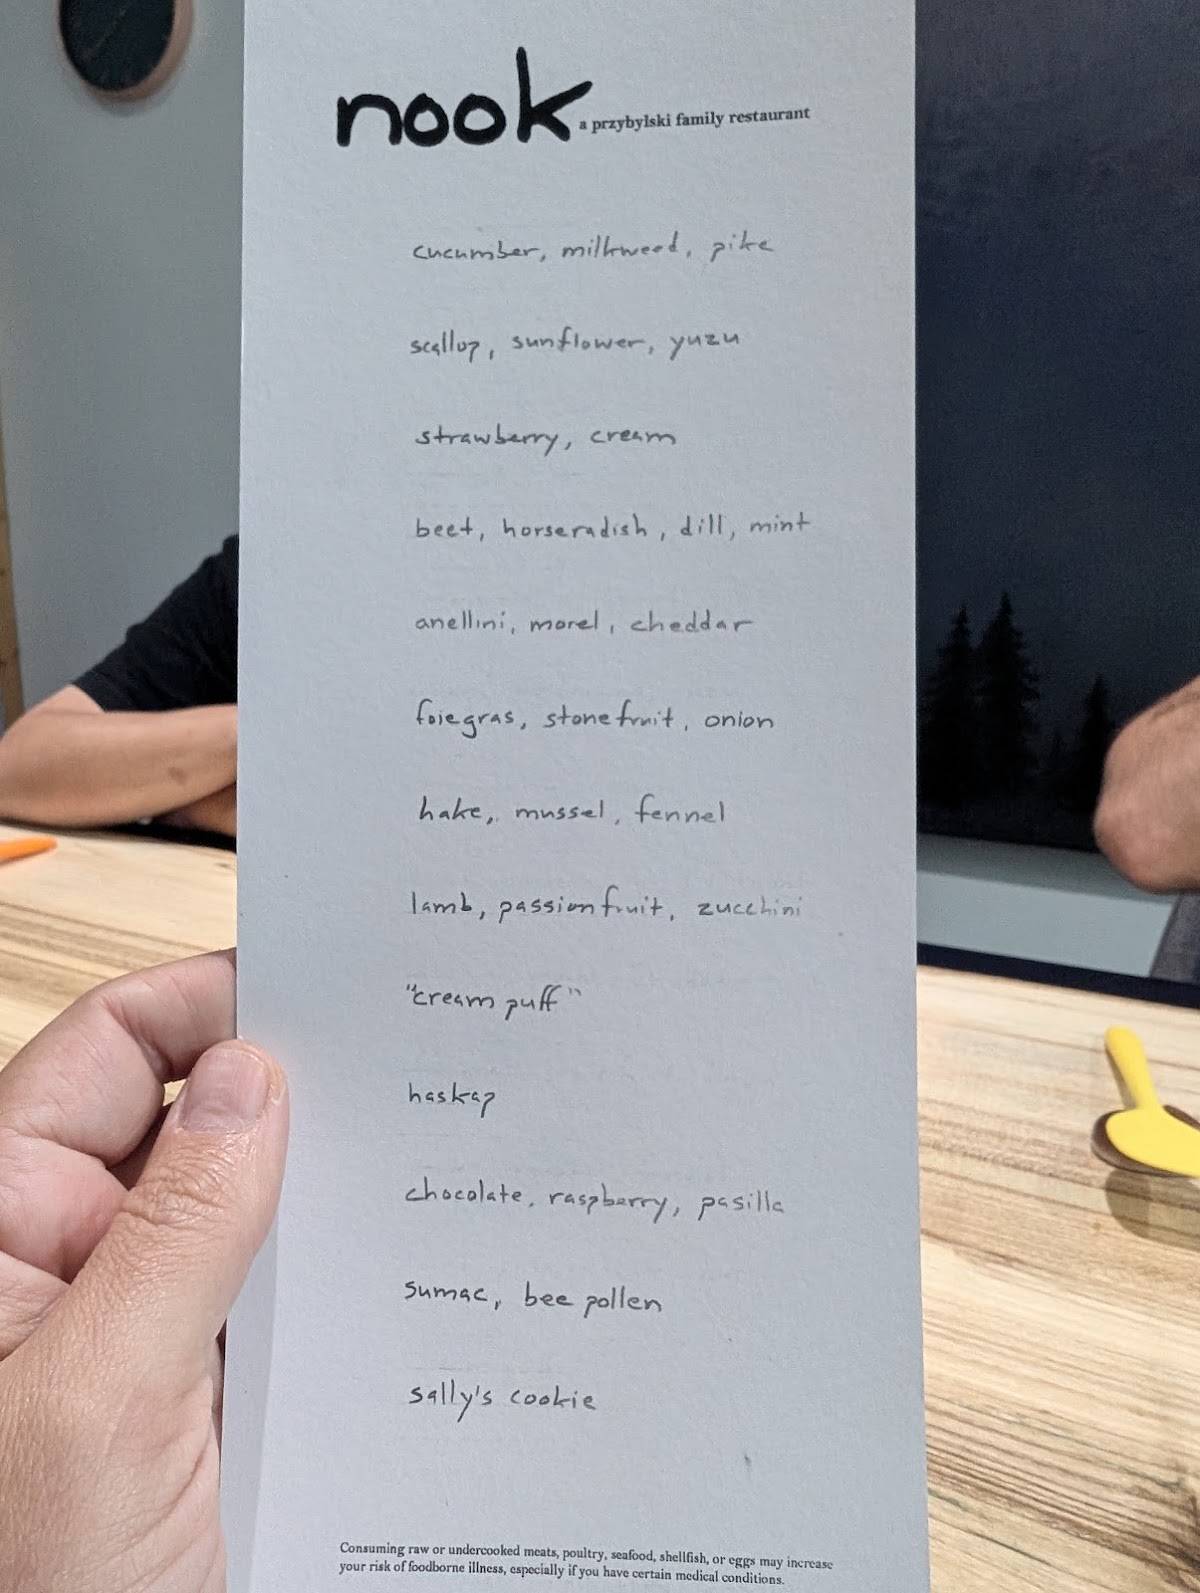 nook a przybylski family restaurant
cucumber, milkweed, pike
scallop, sunflower, yuzu
strawberry, cream
beet, horseradish, dill, mint
anellini, morel, cheddar
foie gras, stone fruit, onion
hake, mussel, fennel
lamb, passionfruit, zucchini
"cream puff"
haskap
chocolate, raspberry, pasilla
sumac, bee pollen
sally's cookie
Consuming raw or undercooked meats, poultry, seafood, shellfish, or eggs may increase
your risk of foodborne illness, especially if you have certain medical conditions.